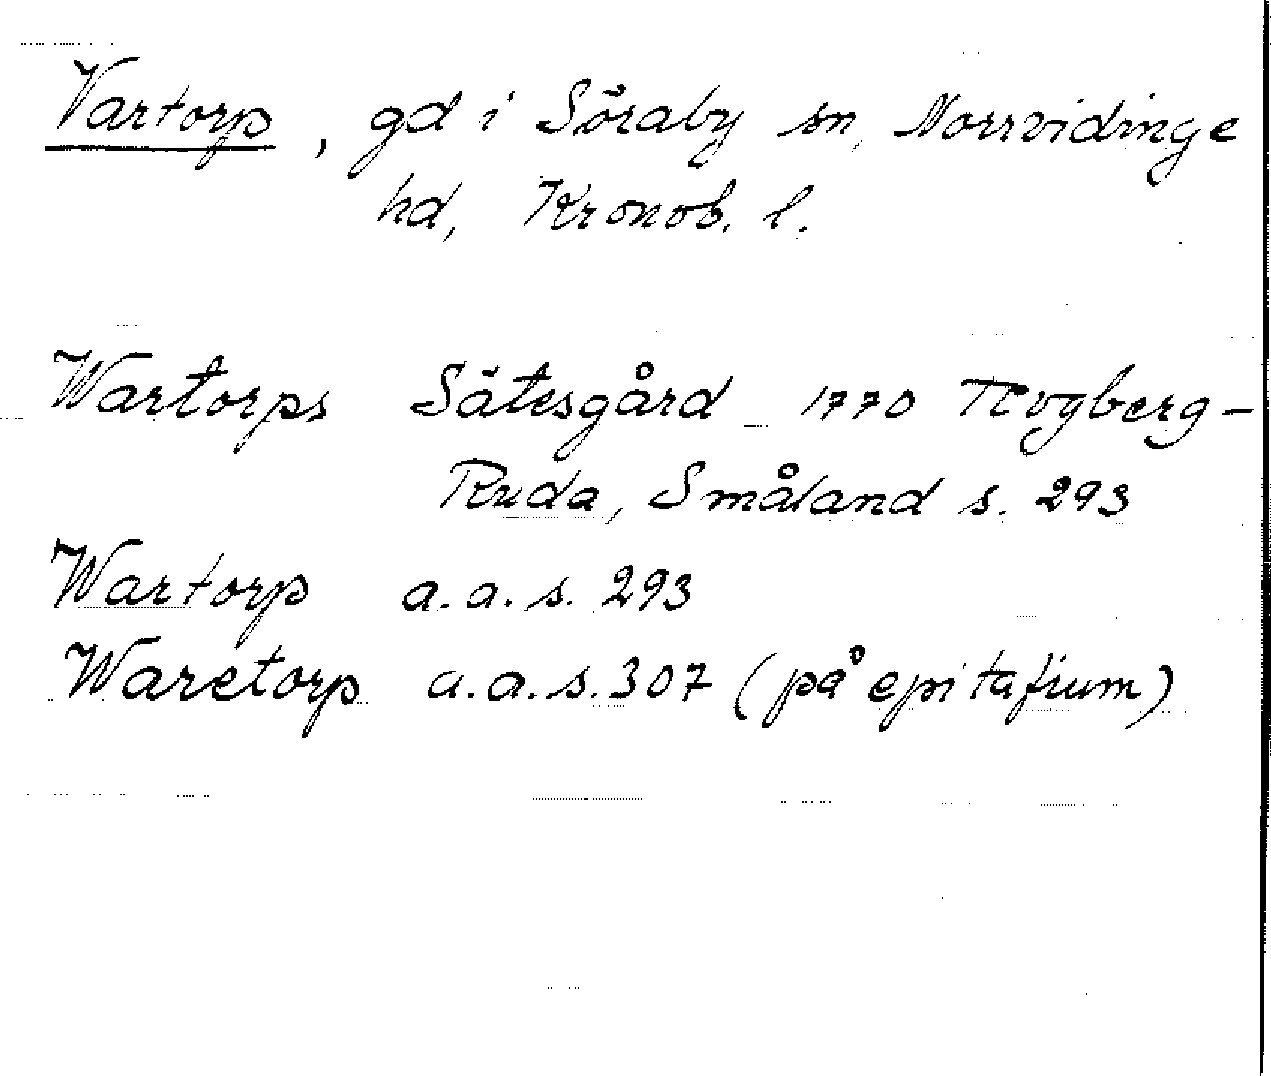 Vartorp, gd i Söraby sn, Norrvidinge
hd, Kronob. l.
Wartorps Sätesgård 1770 Rogberg-
Ruda, Småland s. 293
Wartorp a.a.s. 293
Waretorp a.a.s. 307 (på epitafium)